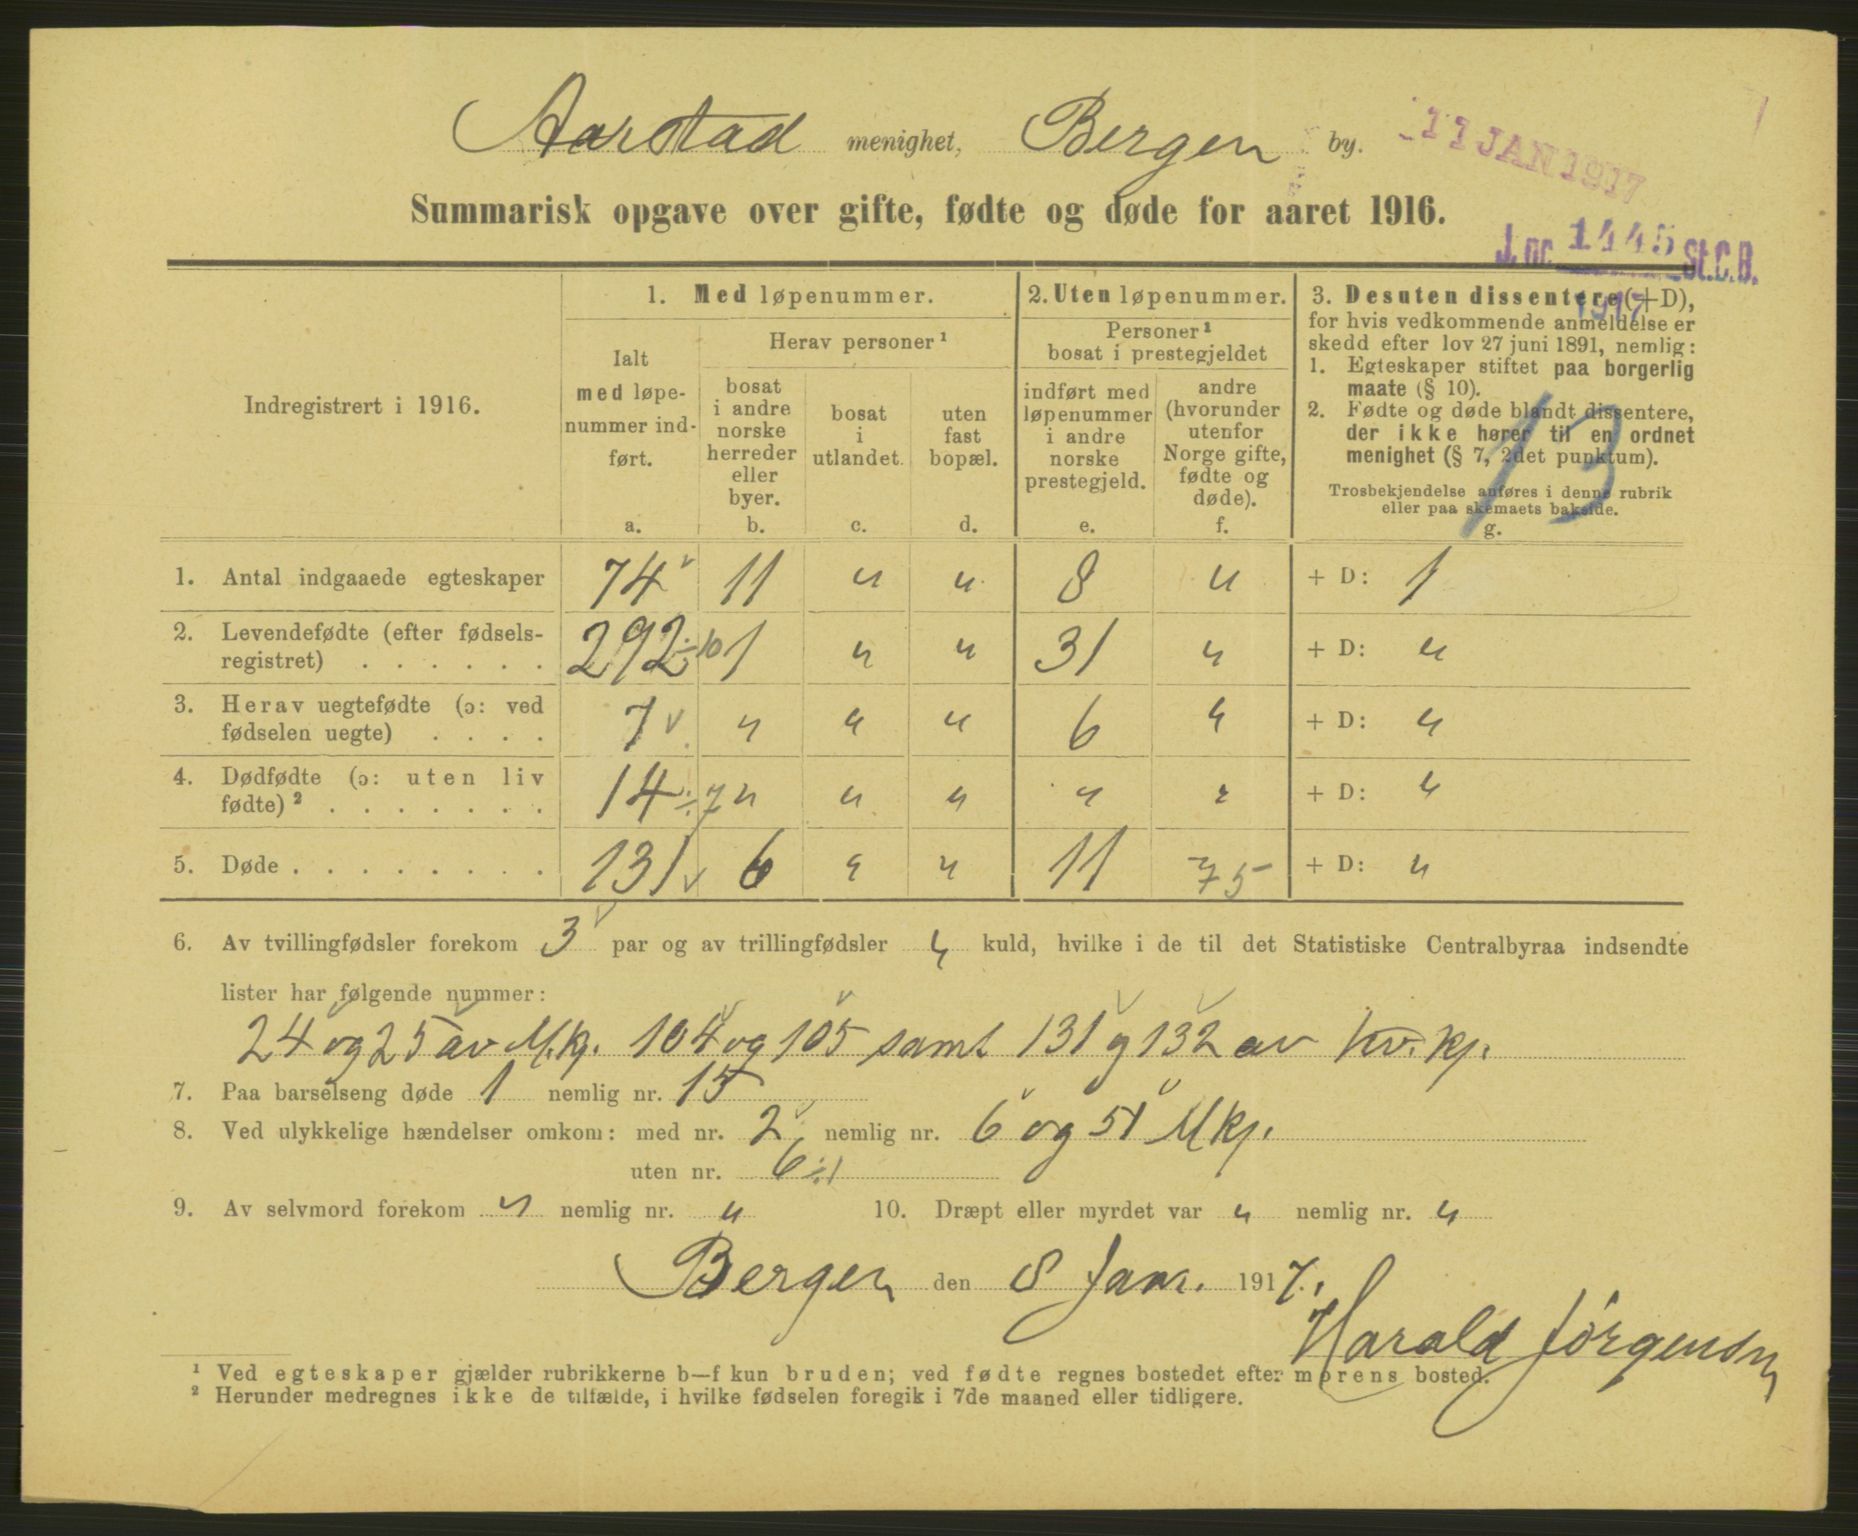 Aarstad menighet, Bergen by.
11 JAN 1917
Summarisk opgave over gifte, fødte og døde for aaret 1916.
J. nr. 1445 St.C.B.
1917
Indregistrert i 1916.
1. Med løpenummer.
Ialt med løpenummer indført.
a.
Herav personer¹
bosat i andre norske herreder eller byer.
b.
bosat i utlandet.
c.
uten fast bopæl.
d.
2. Uten løpenummer.
Personer¹ bosat i prestegjeldet
indført med løpenummer i andre norske prestegjeld.
e.
andre (hvorunder utenfor Norge gifte, fødte og døde).
f.
3. Desuten dissentere (+D),
for hvis vedkommende anmeldelse er
skedd efter lov 27 juni 1891, nemlig:
1. Egteskaper stiftet paa borgerlig
maate (§ 10).
2. Fødte og døde blandt dissentere,
der ikke hører til en ordnet
menighet (§ 7, 2det punktum).
Trosbekjendelse anføres i denne rubrik
eller paa skemaets bakside.
g.
13
1. Antal indgaaede egteskaper 74 11 " " 8 " + D: 1
2. Levendefødte (efter fødsels-
registret) . . . . . . 292 ÷10 1 " " 31 " + D: "
3. Herav uegtefødte (ɔ: ved
fødselen uegte) . . . . 7 " " " 6 " + D: "
4. Dødfødte (ɔ: uten liv
fødte)² . . . . . . . 14 ÷7 " " " " " + D: "
5. Døde . . . . . . . . 131 6 " " 11 75 + D: "
6. Av tvillingfødsler forekom 3 par og av trillingfødsler " kuld, hvilke i de til det Statistiske Centralbyraa indsendte
lister har følgende nummer:
24 og 25 av M.kj. 104 og 105 samt 131 g 132 av kv. kj.
7. Paa barselseng døde 1 nemlig nr. 15
8. Ved ulykkelige hændelser omkom: med nr. 2, nemlig nr. 6 og 51 M kj.
uten nr. 6 ÷1
9. Av selvmord forekom " nemlig nr. " 10. Dræpt eller myrdet var " nemlig nr. "
Bergen den 8 Janr. 1917.
Harald Jörgensen
¹ Ved egteskaper gjælder rubrikkerne b—f kun bruden; ved fødte regnes bostedet efter morens bosted.
² Herunder medregnes ikke de tilfælde, i hvilke fødselen foregik i 7de maaned eller tidligere.